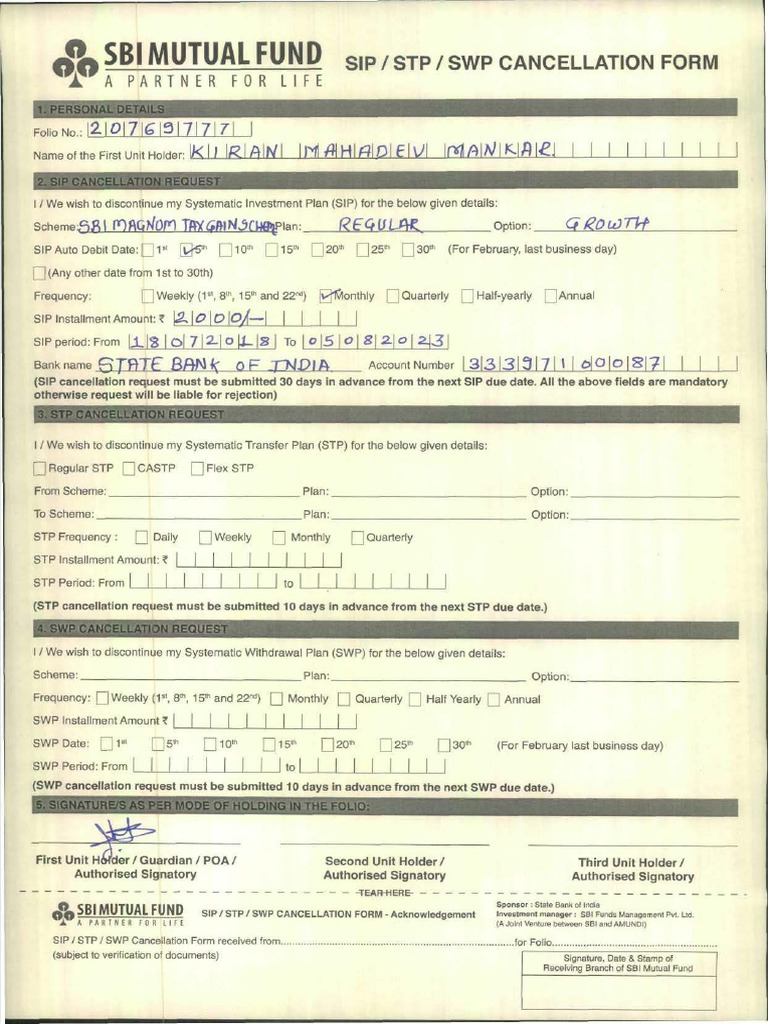 SBI MUTUAL FUND
A PARTNER FOR LIFE
SIP / STP / SWP CANCELLATION FORM
1. PERSONAL DETAILS
Folio No.: 20769777
Name of the First Unit Holder: KIRAN MAHADEV MANKAR
2. SIP CANCELLATION REQUEST
I / We wish to discontinue my Systematic Investment Plan (SIP) for the below given details:
Scheme: SBI MAGNOM TAXGAIN SCHEM Plan: REGULAR Option: GROWTH
SIP Auto Debit Date: 1st 5th 10th 15th 20th 25th 30th (For February, last business day)
(Any other date from 1st to 30th)
Frequency: Weekly (1st, 8th, 15th and 22nd) Monthly Quarterly Half-yearly Annual
SIP Installment Amount: ₹ 2000/-
SIP period: From 18072018 To 05082023
Bank name STATE BANK OF INDIA Account Number 33397100087
(SIP cancellation request must be submitted 30 days in advance from the next SIP due date. All the above fields are mandatory
otherwise request will be liable for rejection)
3. STP CANCELLATION REQUEST
I / We wish to discontinue my Systematic Transfer Plan (STP) for the below given details:
Regular STP CASTP Flex STP
From Scheme: Plan: Option:
To Scheme: Plan: Option:
STP Frequency : Daily Weekly Monthly Quarterly
STP Installment Amount: ₹
STP Period: From to
(STP cancellation request must be submitted 10 days in advance from the next STP due date.)
4. SWP CANCELLATION REQUEST
I / We wish to discontinue my Systematic Withdrawal Plan (SWP) for the below given details:
Scheme: Plan: Option:
Frequency: Weekly (1st, 8th, 15th and 22nd) Monthly Quarterly Half Yearly Annual
SWP Installment Amount ₹
SWP Date: 1st 5th 10th 15th 20th 25th 30th (For February last business day)
SWP Period: From to
(SWP cancellation request must be submitted 10 days in advance from the next SWP due date.)
5. SIGNATURE/S AS PER MODE OF HOLDING IN THE FOLIO:
First Unit Holder / Guardian / POA /
Authorised Signatory
Second Unit Holder /
Authorised Signatory
Third Unit Holder /
Authorised Signatory
TEAR HERE
SBI MUTUAL FUND
A PARTNER FOR LIFE
SIP / STP / SWP CANCELLATION FORM - Acknowledgement
Sponsor : State Bank of India
Investment manager : SBI Funds Management Pvt. Ltd.
(A Joint Venture between SBI and AMUNDI)
SIP / STP / SWP Cancellation Form received from for Folio
(subject to verification of documents)
Signature, Date & Stamp of
Receiving Branch of SBI Mutual Fund